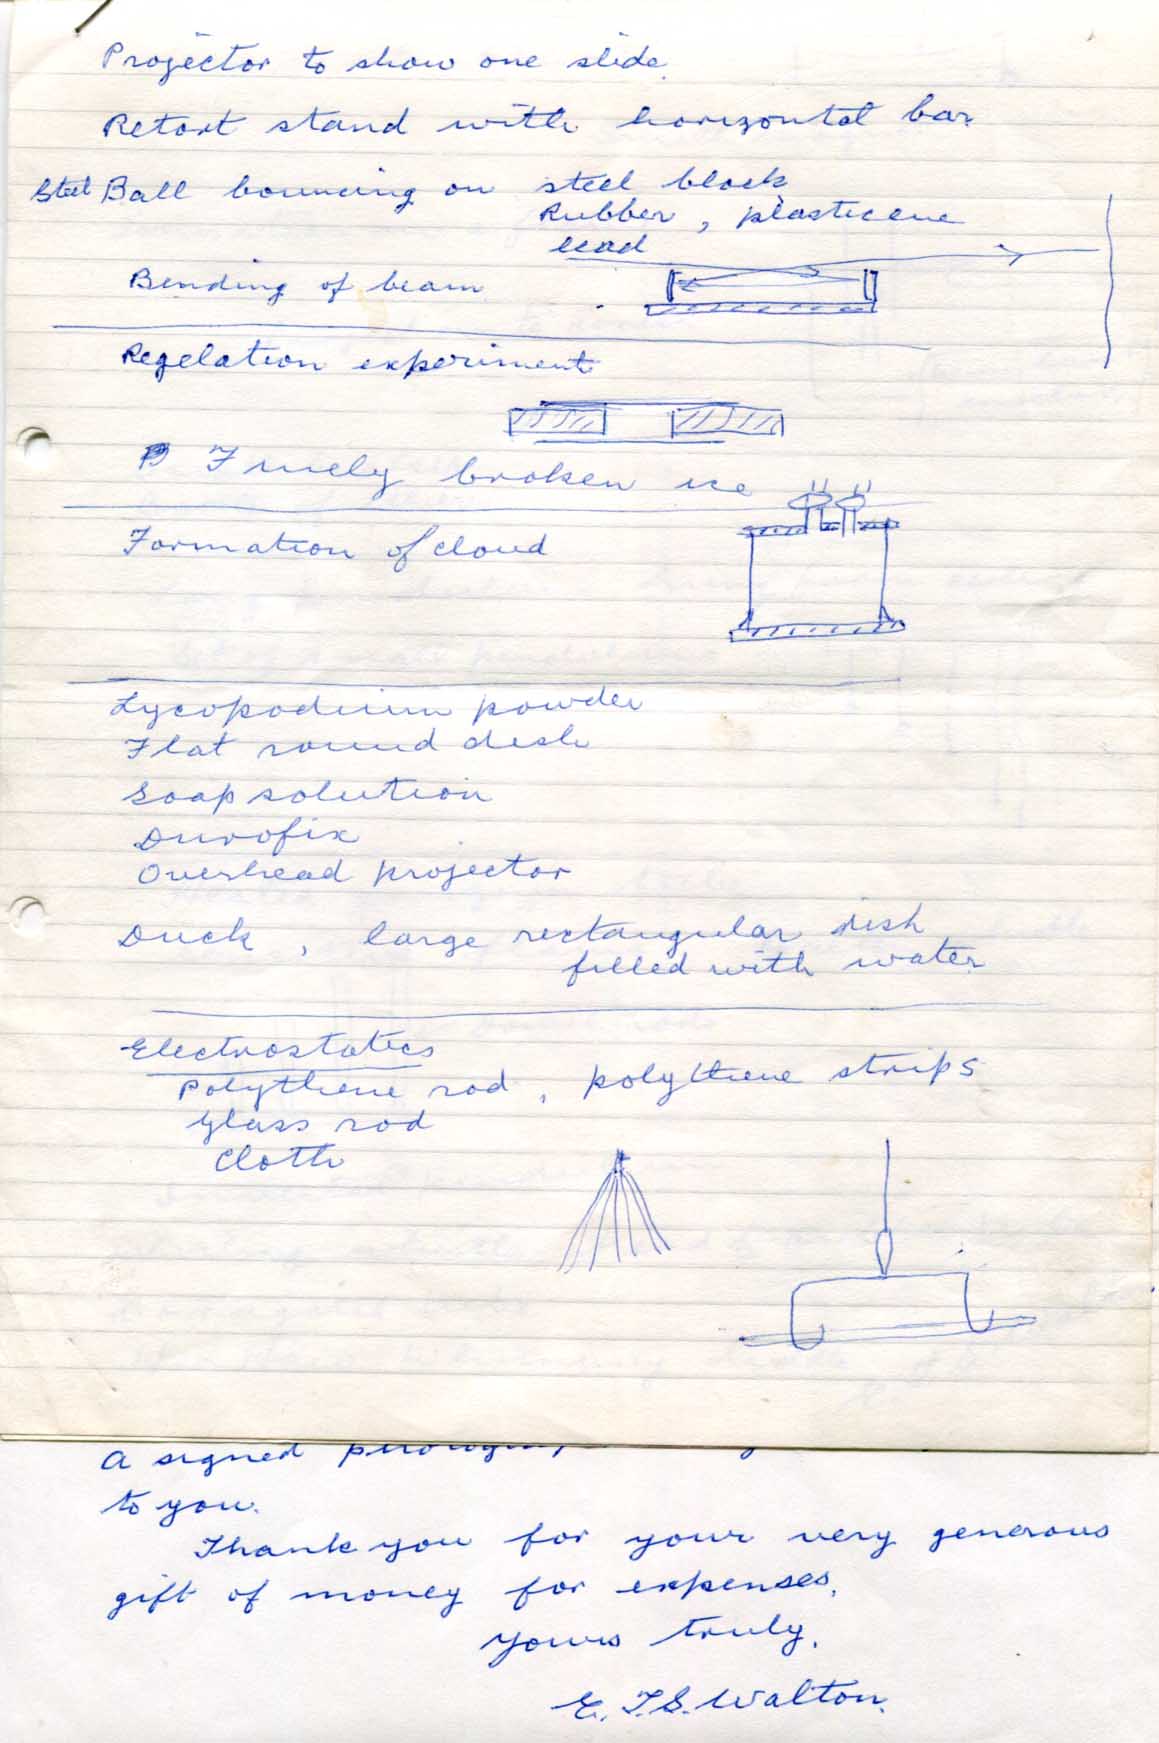 Projector to show one slide.
Retort stand with horizontal bar
Steel Ball bouncing on steel block
Rubber, plasticene
lead
Bending of beam
Regelation experiment
Finely broken ice
Formation of cloud
Lycopodium powder
Flat round dish
Soap solution
Durofix
Overhead projector
Duck, large rectangular dish
filled with water
Electrostatics
Polythene rod, polythene strips
Glass rod
Cloth
a signed
to you.
Thank you for your very generous
gift of money for expenses.
Yours truly,
E. T. S. Walton.